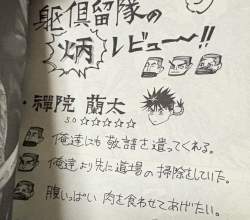 躯倶留隊の
炳レビュー〜!!
・禪院 蘭太
5.0 ☆☆☆☆☆
俺達にも敬語を遣ってくれる。
俺達より先に道場の掃除をしていた。
腹いっぱい肉を食わせてあげたい。